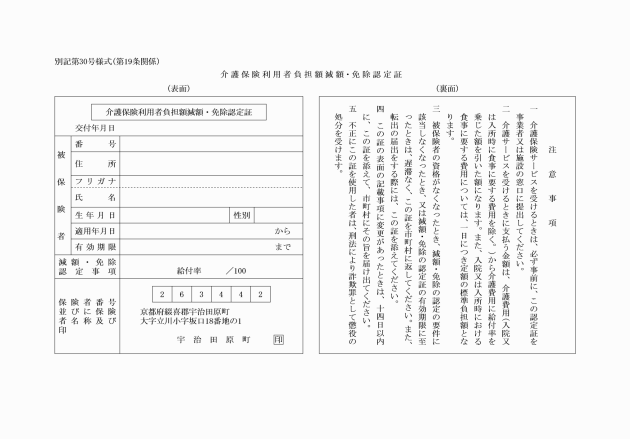 別記第30号様式(第19条関係)
介護保険利用者負担額減額・免除認定証
(表面)
介護保険利用者負担額減額・免除認定証
交付年月日
被保険者
番号
住所
フリガナ
氏名
生年月日
性別
適用年月日
から
有効期限
まで
減額・免除
認定事項
給付率 /100
保険者番号
並びに保険
者名称及び
印
2 6 3 4 4 2
京都府綴喜郡宇治田原町
大字立川小字坂口18番地の1
宇治田原町 印
(裏面)
注意事項
一 介護保険サービスを受けるときは、必ず事前に、この認定証を
事業者又は施設の窓口に提出してください。
二 介護サービスを受けるときに支払う金額は、介護費用(入院又
は入所時に食事に要する費用を除く。)から介護費用に給付率を
乗じた額を引いた額になります。また、入院又は入所時における
食事に要する費用については、一日につき定額の標準負担額とな
ります。
三 被保険者の資格がなくなったとき、減額・免除の認定の要件に
該当しなくなったとき、又は減額・免除の認定証の有効期限に至
ったときは、遅滞なく、この証を市町村に返してください。また、
転出の届出をする際には、この証を添えてください。
四 この証の表面の記載事項に変更があったときは、十四日以内
に、この証を添えて、市町村にその旨を届け出てください。
五 不正にこの証を使用した者は、刑法により詐欺罪として懲役の
処分を受けます。